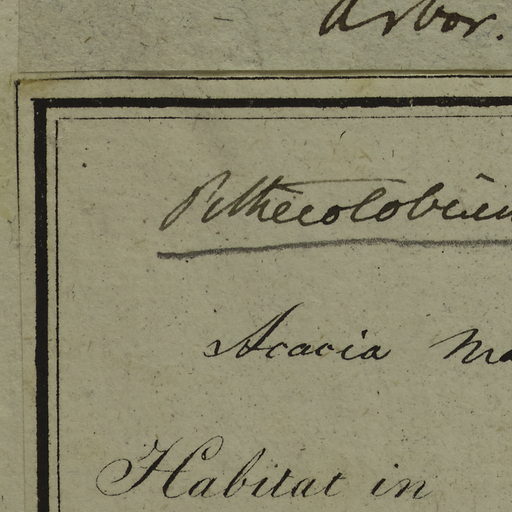 Arbor.
Pithecolobium
Acacia Ma
Habitat in